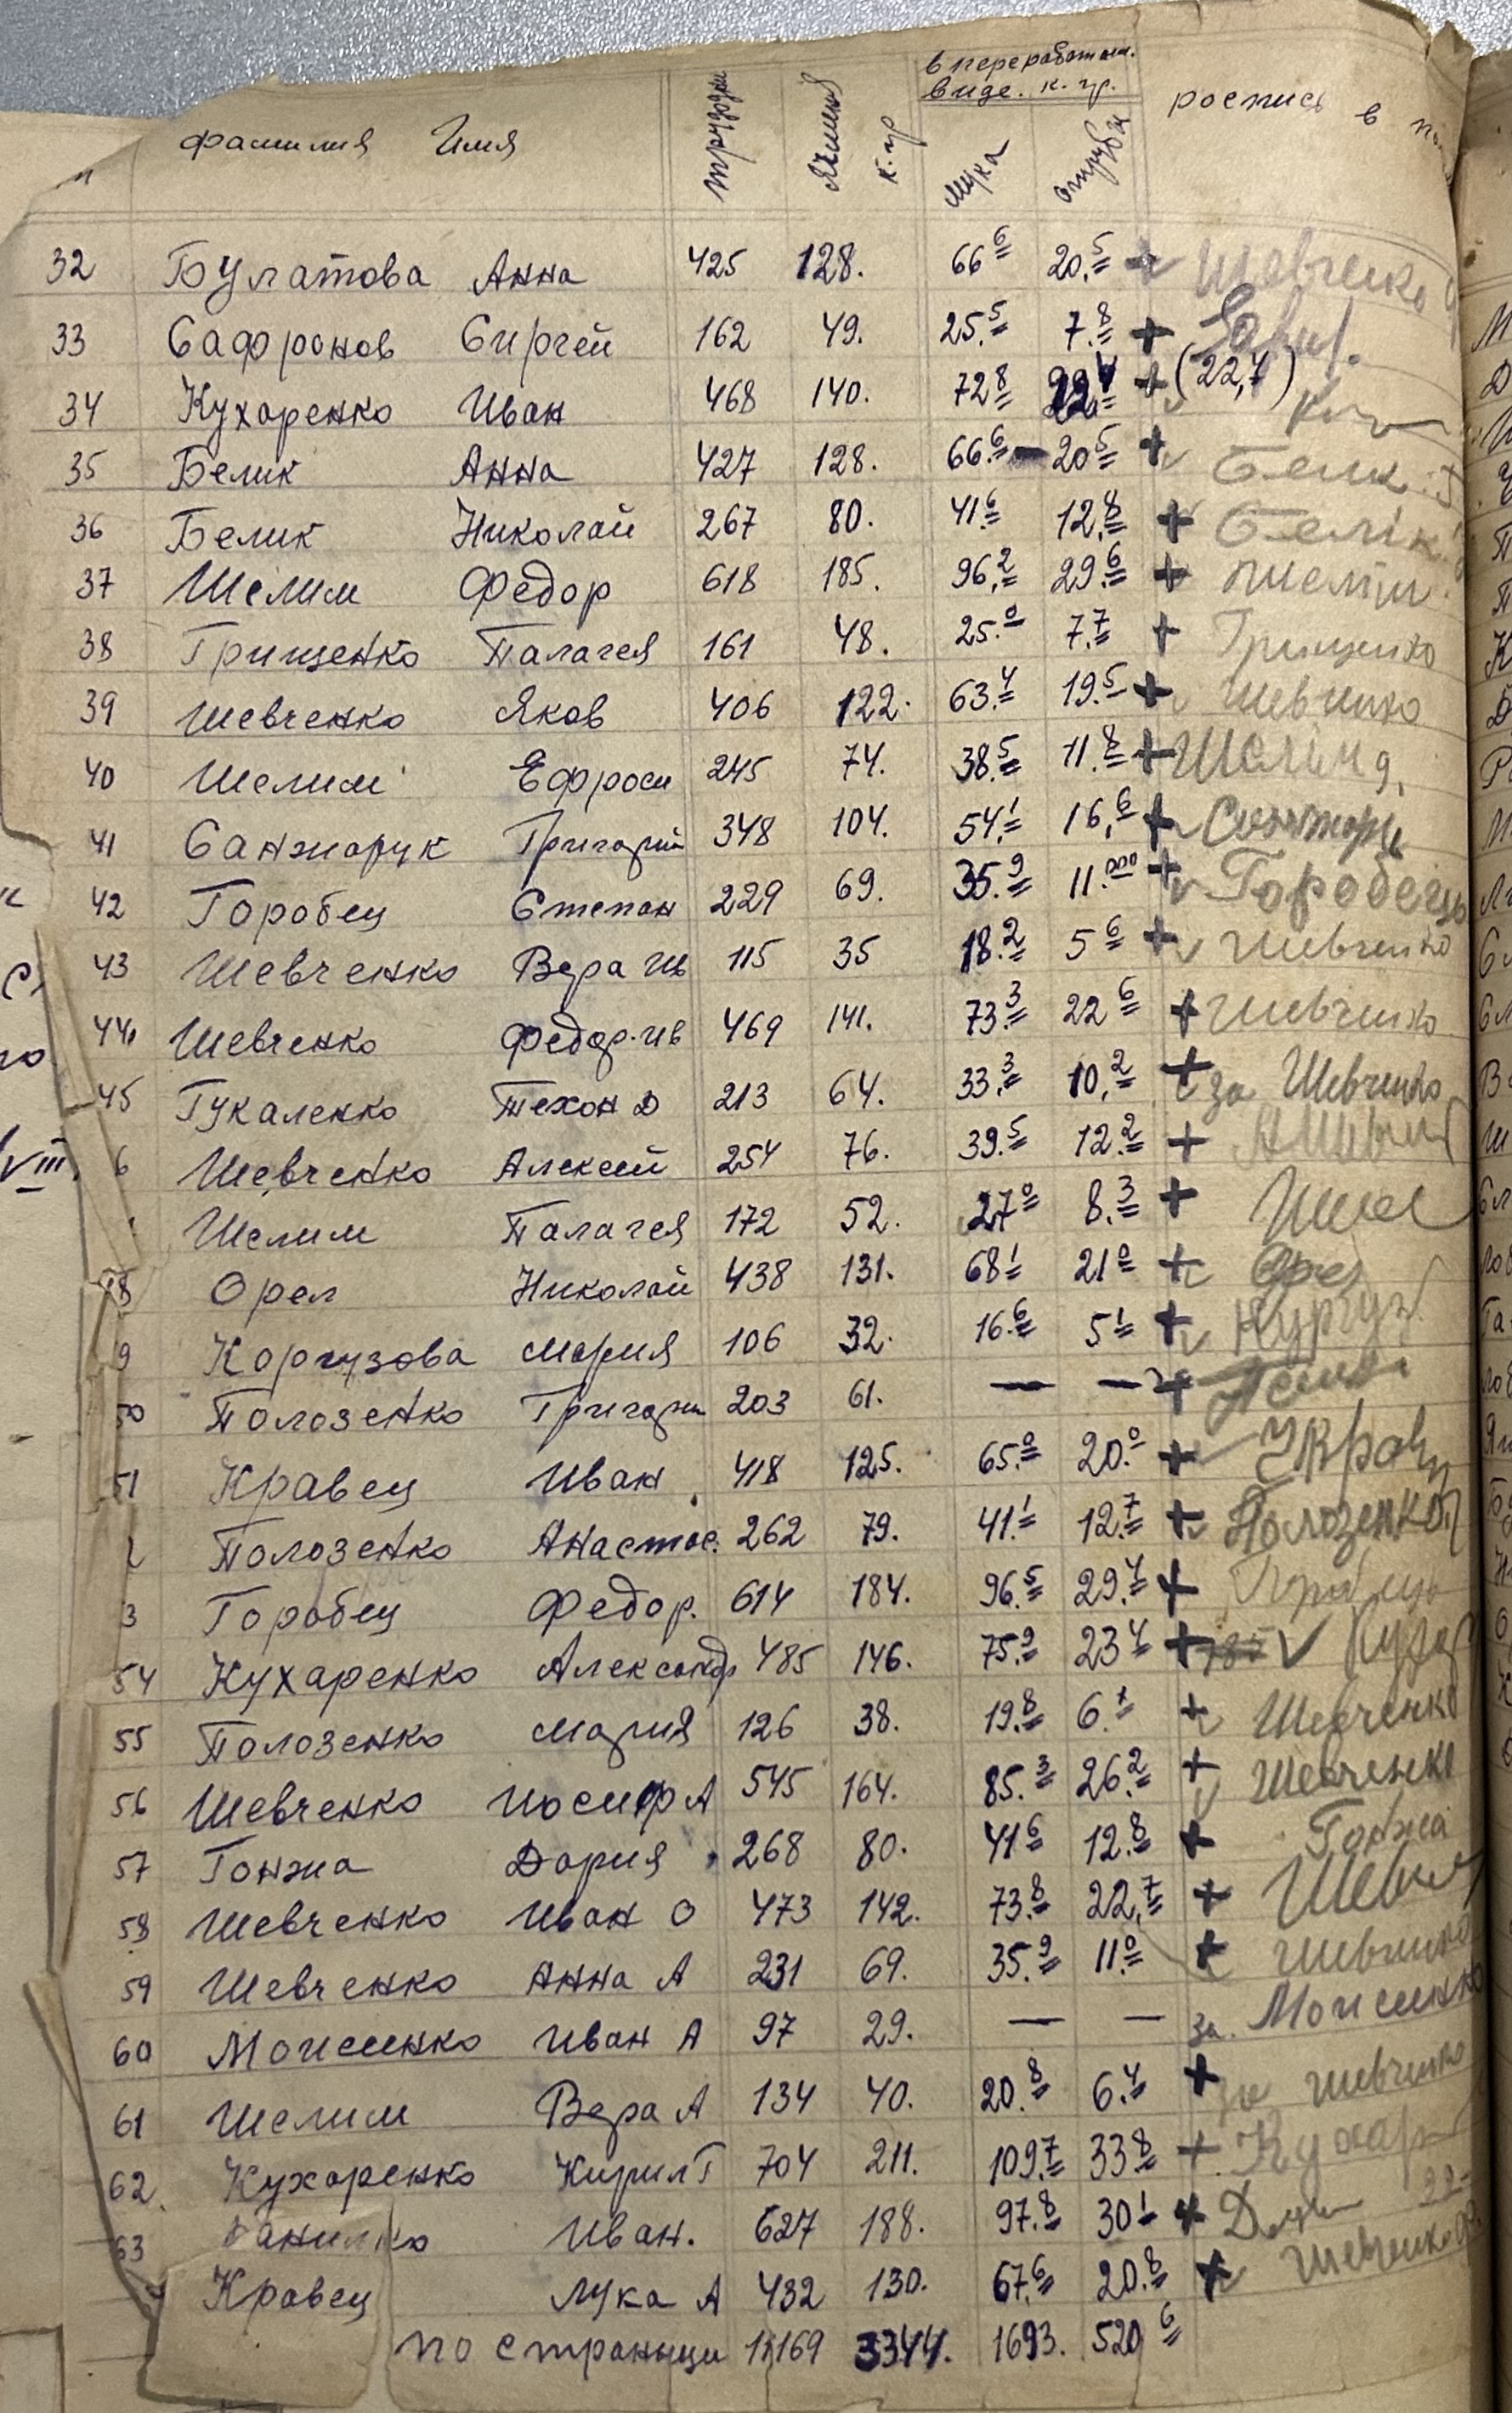 фамилия Имя трудодни Ячменя к.гр в переработан. виде. к.гр. мука отруби роспись в
32 Булатова Анна 425 128. 66 6 20.5 + Шевченко
33 Сафронов Сиргей 162 49. 25.5 7.8 +
34 Кухаренко Иван 468 140. 72 8 22.4 + (22,7)
35 Белик Анна 427 128. 66.6 - 20 5 + Белик
36 Белик Николай 267 80. 41.6 12.8 + Белік
37 Шелим Федор 618 185. 96.2 29.6 + Шелім
38 Грищенко Палагея 161 48. 25.0 7.7 + Грищенко
39 Шевченко Яков 406 122. 63.4 19.5 + Шевченко
40 Шелим Ефроси 245 74. 38.5 11.8 + Шелім
41 Санжарук Григорий 348 104. 54.1 16.6 +
42 Горобец Степан 229 69. 35.9 11.000 + Горобець
43 Шевченко Вера Ив 115 35 18.2 5 6 + Шевченко
44 Шевченко Федор.Ив 469 141. 73.3 22 6 + Шевченко
45 Гукаленко Техон Д 213 64. 33.3 10.2 + за Шевченко
6 Шевченко Алексей 254 76. 39.5 12 2 +
Шелим Палагея 172 52. 27 0 8.3 +
48 Орел Николай 438 131. 68 1 21 0 +
9 Коргузова Мария 106 32. 16.6 5 1 +
50 Полозенко Григори 203 61. — — +
51 Кравец Иван 418 125. 65.0 20.0 +
2 Полозенко Анастас. 262 79. 41.1 12.7 + Полозенко
3 Горобец Федор. 614 184. 96.5 29.4 + Горобець
54 Кухаренко Александр 485 146. 75.9 23 4 +
55 Полозенко Мария 126 38. 19.8 6.1 + Шевченко
56 Шевченко Иосиф А 545 164. 85.3 26.2 + Шевченко
57 Гонжа Дария 268 80. 41 6 12.8 + Гонжа
58 Шевченко Иван О 473 142. 73.8 22.7 +
59 Шевченко Анна А 231 69. 35.9 11.0 + Шевченко
60 Моисенко Иван А 97 29. — — за Моисенко
61 Шелим Вера А 134 40. 20.8 6.4 + за Шевченко
62. Кухаренко Кирил Г 704 211. 109.7 33 8 + Кухар
63 Данилко Иван. 627 188. 97.8 30 1 +
Кравец Лука А 432 130. 67.6 20.8 + Шевченко
по страницы 11169 3344. 1693. 520 6